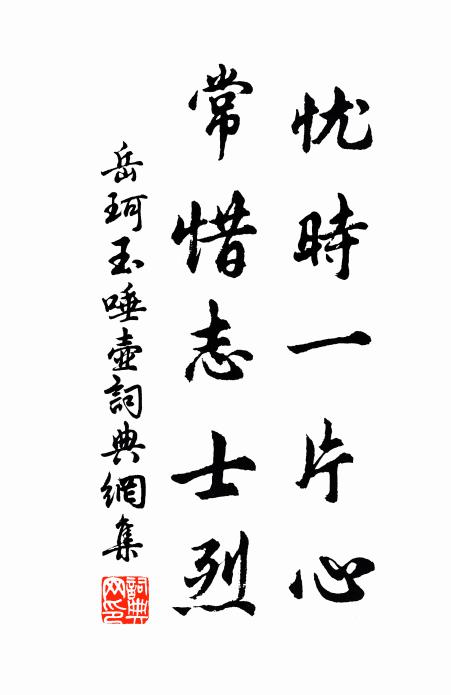 忧時一片心
常惜志士烈
岳珂玉唾壺詞典網集
詞典网印